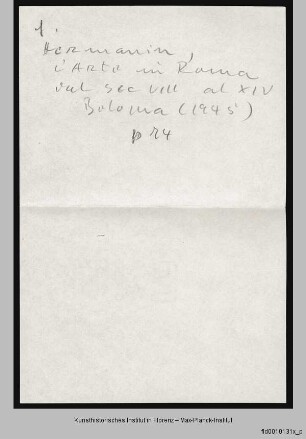 1.
Hermanin,
L'Arte in Roma
dal sec VIII al XIV
Bologna (1945)
p 74
Kunsthistorisches Institut in Florenz – Max-Planck-Institut
fld0010131x_p